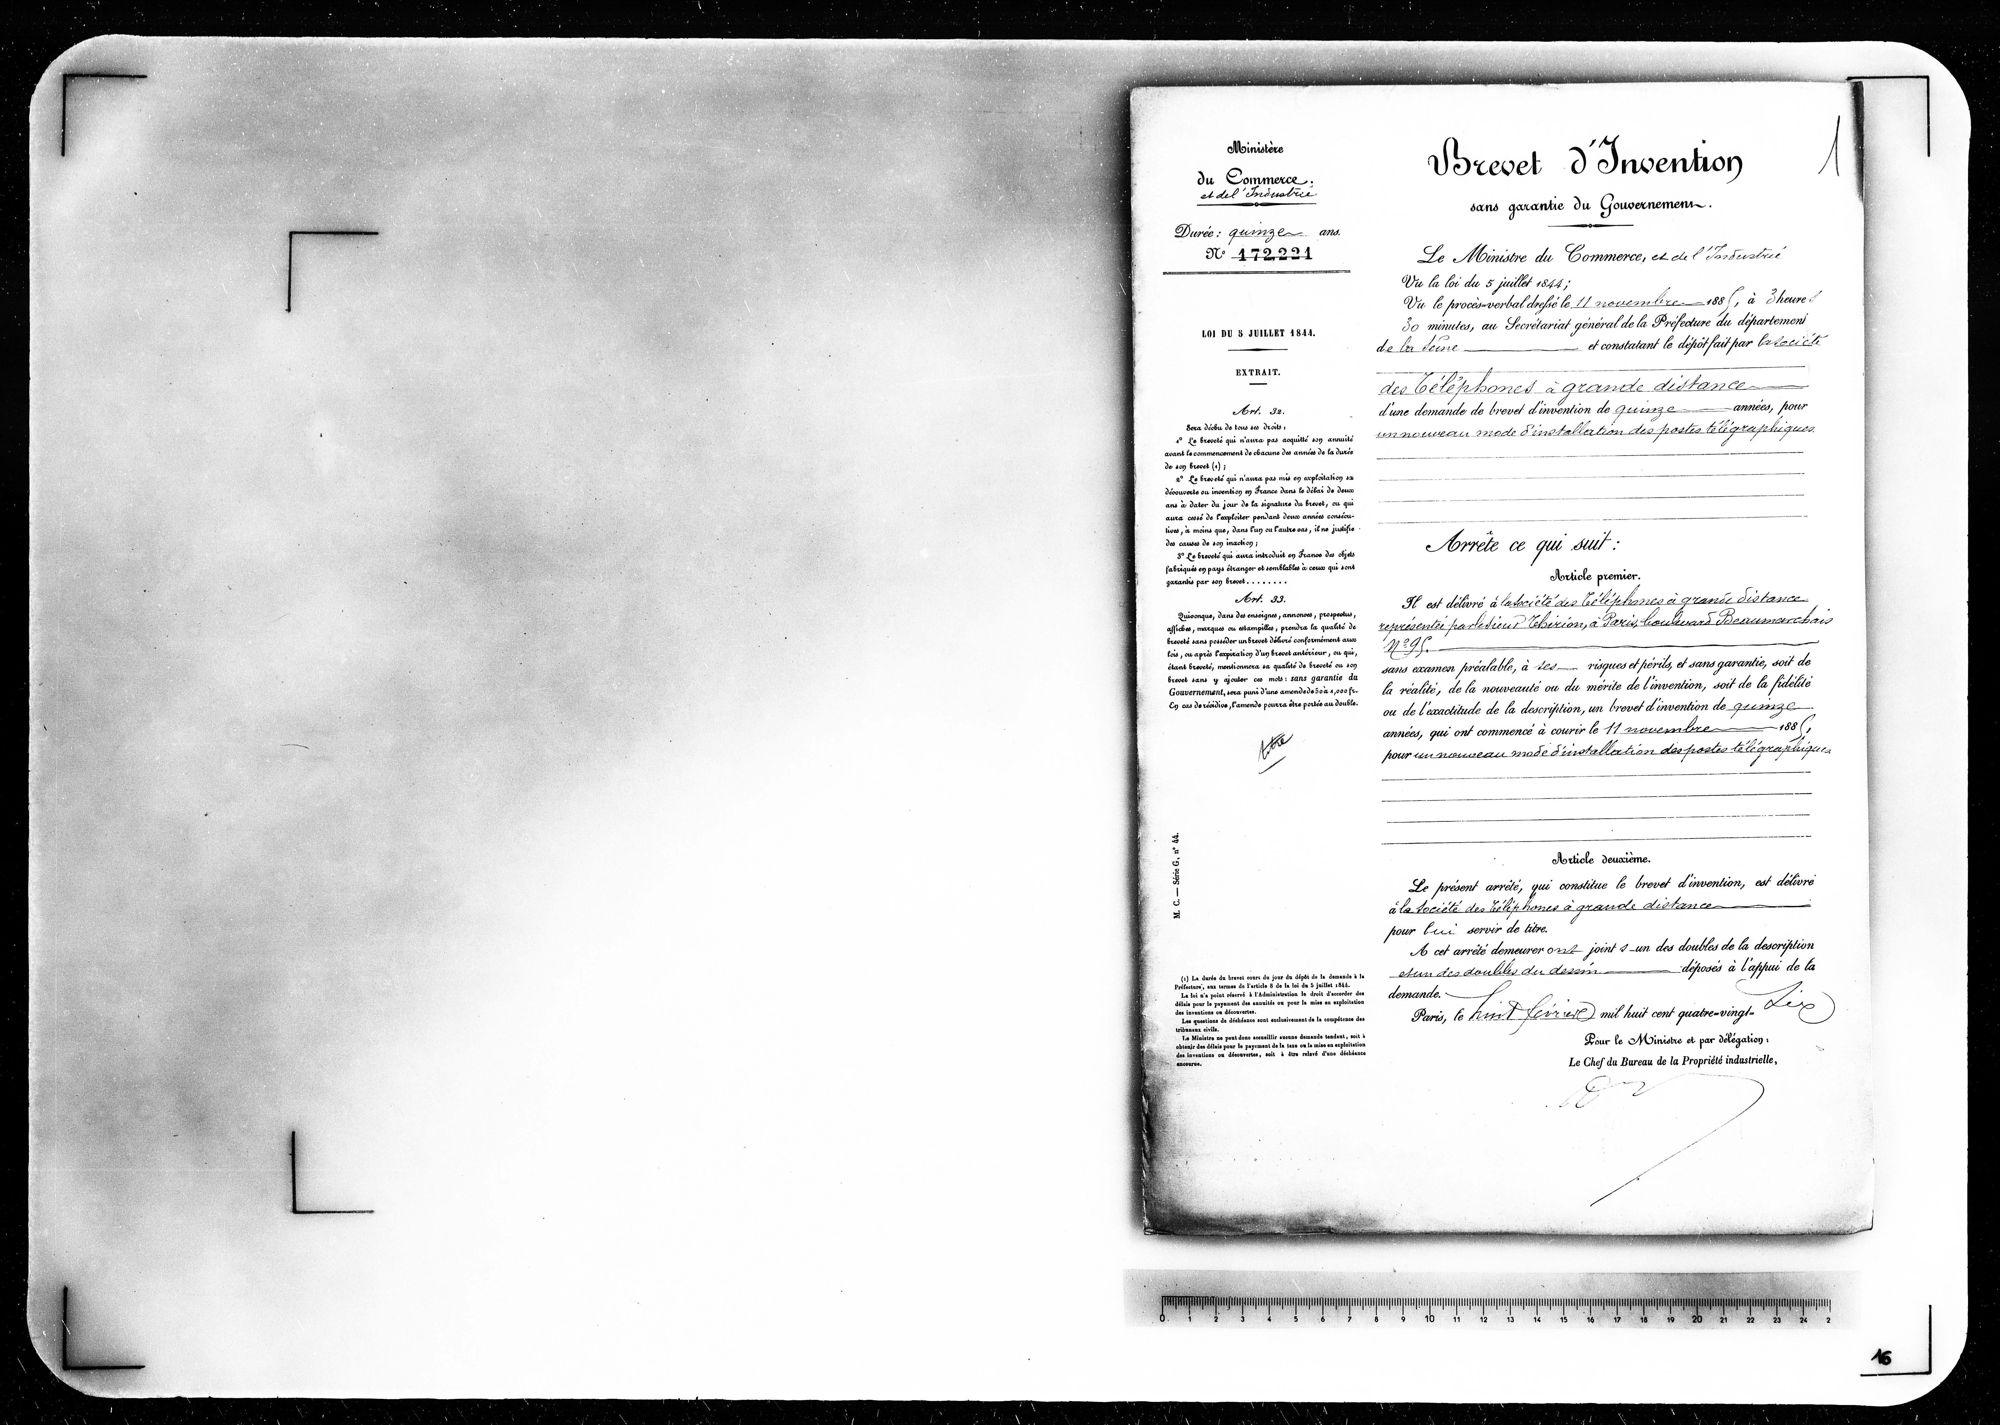 Ministère
du Commerce.
et de l'Industrie
Durée: quinze ans.
N° 172,221
LOI DU 5 JUILLET 1844.
EXTRAIT.
Art. 32.
Sera déchu de tous ses droits:
1° Le breveté qui n'aura pas acquitté son annuité
avant le commencement de chacune des années de la durée
de son brevet (1);
2° Le breveté qui n'aura pas mis en exploitation sa
découverte ou invention en France dans le délai de deux
ans à dater du jour de la signature du brevet, ou qui
aura cessé de l'exploiter pendant deux années consécu-
tives, à moins que, dans l'un ou l'autre cas, il ne justifie
des causes de son inaction;
3° Le breveté qui aura introduit en France des objets
fabriqués en pays étranger et semblables à ceux qui sont
garantis par son brevet........
Art. 33.
Quiconque, dans des enseignes, annonces, prospectus,
affiches, marques ou estampilles, prendra la qualité de
breveté sans posséder un brevet délivré conformément aux
lois, ou après l'expiration d'un brevet antérieur, ou qui,
étant breveté, mentionnera sa qualité de breveté ou son
brevet sans y ajouter ces mots: sans garantie du
Gouvernement, sera puni d'une amende de 50 à 1,000 fr.
En cas de récidive, l'amende pourra être portée au double.
M. C. — Série G, n° 44.
(1) La durée du brevet court du jour du dépôt de la demande à la
Préfecture, aux termes de l'article 8 de la loi du 5 juillet 1844.
La loi n'a point réservé à l'Administration le droit d'accorder des
délais pour le payement des annuités ou pour la mise en exploitation
des inventions ou découvertes.
Les questions de déchéance sont exclusivement de la compétence des
tribunaux civils.
Le Ministre ne peut donc accueillir aucune demande tendant, soit à
obtenir des délais pour le payement de la taxe ou la mise en exploitation
des inventions ou découvertes, soit à être relevé d'une déchéance
encourue.
1
Brevet d'Invention
sans garantie du Gouvernement.
Le Ministre du Commerce, et de l'Industrie
Vu la loi du 5 juillet 1844;
Vu le procès-verbal dressé le 11 novembre 1885, à 3 heures
30 minutes, au Secrétariat général de la Préfecture du département
de la Seine et constatant le dépôt fait par la société
des Téléphones à grande distance
d'une demande de brevet d'invention de quinze années, pour
un nouveau mode d'installation des postes télégraphiques.
Arrête ce qui suit:
Article premier.
Il est délivré à la société des Téléphones à grande distance
représentée par le sieur Thirion, à Paris, boulevard Beaumarchais
N° 95.
sans examen préalable, à ses risques et périls, et sans garantie, soit de
la réalité, de la nouveauté ou du mérite de l'invention, soit de la fidélité
ou de l'exactitude de la description, un brevet d'invention de quinze
années, qui ont commencé à courir le 11 novembre 1885,
pour un nouveau mode d'installation des postes télégraphiques
Article deuxième.
Le présent arrêté, qui constitue le brevet d'invention, est délivré
à la Société des Téléphones à grande distance
pour lui servir de titre.
A cet arrêté demeureront joints un des doubles de la description
et un des doubles du dessin déposés à l'appui de la
demande.
Paris, le huit février mil huit cent quatre-vingt-six
Pour le Ministre et par délégation:
Le Chef du Bureau de la Propriété industrielle,
0 1 2 3 4 5 6 7 8 9 10 11 12 13 14 15 16 17 18 19 20 21 22 23 24 2
16